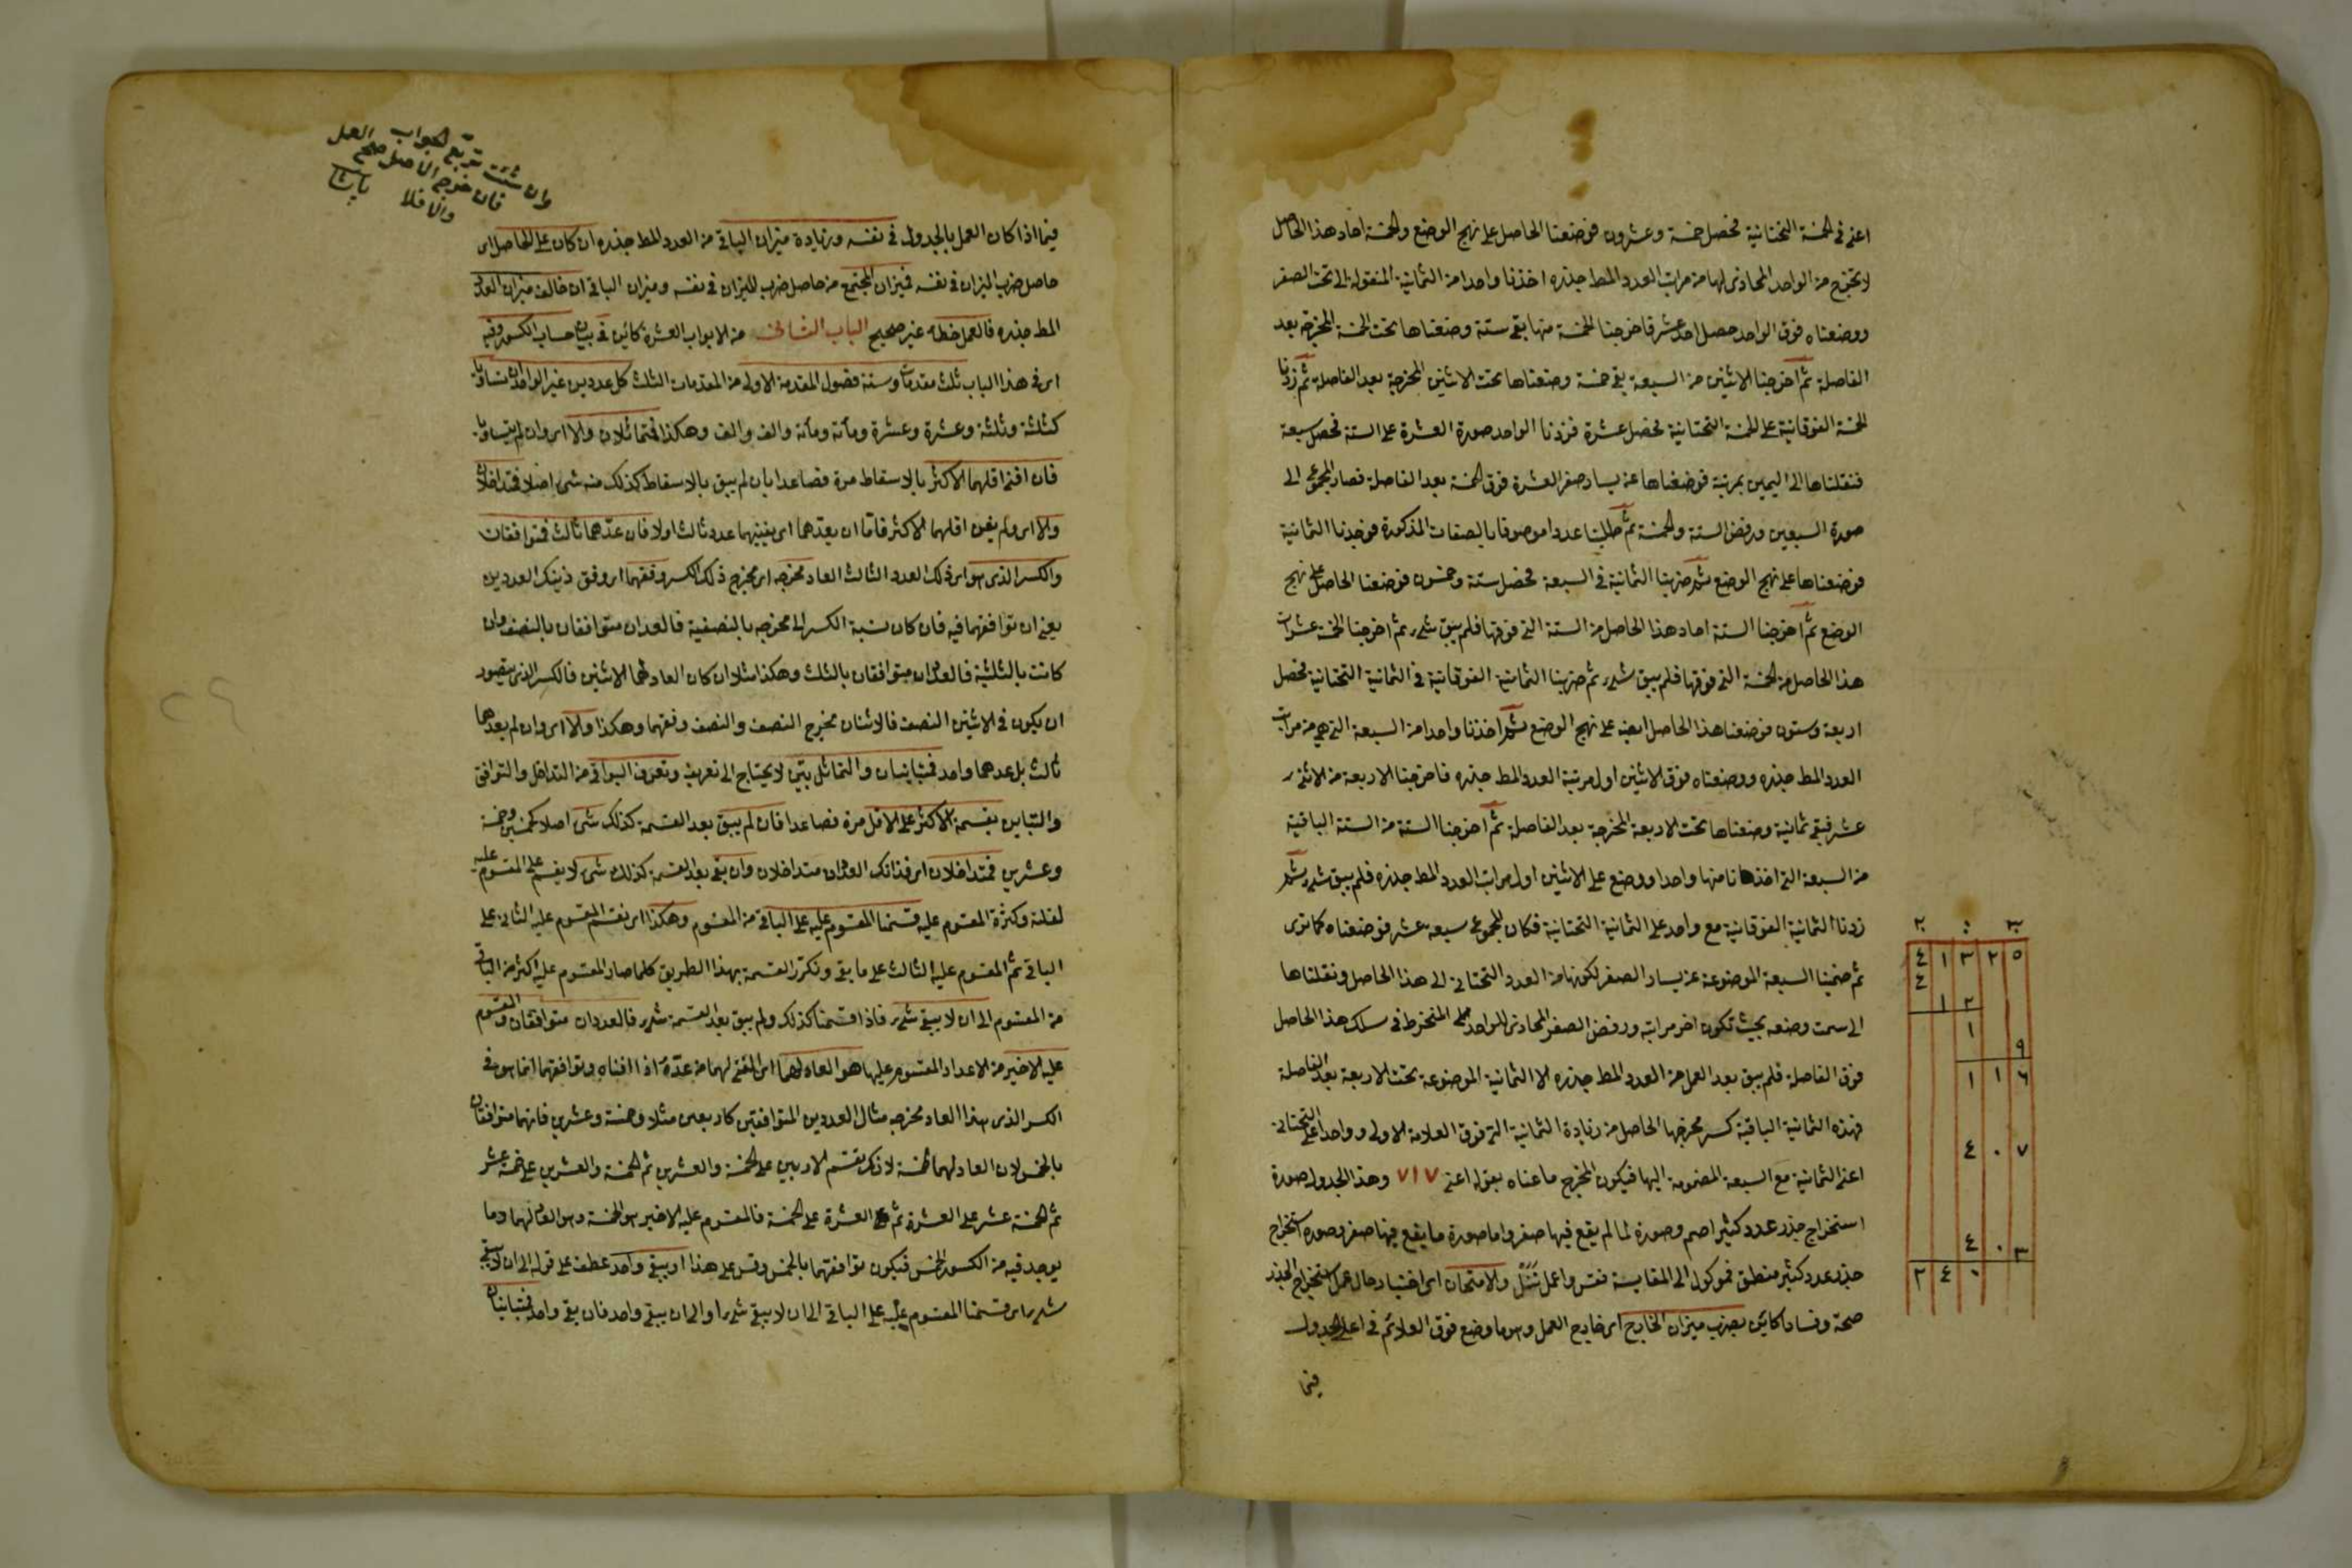 اعنى فى الخمسة التحتانية فحصل خمسة وعشرون فوضعنا الحاصل على نهج الوضع والخمسة احاد هذا الحاصل
لا تخرج من الواحد المحاذى لها من مراتب العدد المط جذره اخذنا واحدا من الثمانية المنقولة الى تحت الصفر
ووضعناه فوق الواحد حصل احد عشر فاخرجنا الخمسة منها بقى ستة وضعناها تحت الخمسة المخرجة بعد
الفاصلة ثم اخرجنا الاثنين من السبعة بقى خمسة وضعناها تحت الاثنين المخرجة بعد الفاصلة ثم زدنا
الخمسة الفوقانية على الخمسة التحتانية فحصل عشرة فزدنا الواحد صورة العشرة على الستة فحصل سبعة
فنقلناها الى اليمين بمرتبة فوضعناها عن يسار صفر العشرة فوق الخمسة بعد الفاصلة فصار المجموع الى
صورة السبعين ورفض الستة والخمسة ثم طلبنا عددا موصوفا بالصفات المذكورة فوجدنا الثمانية
فوضعناها على نهج الوضع ثم ضربنا الثمانية فى السبعة فحصل ستة وخمسون فوضعنا الحاصل على نهج
الوضع ثم اخرجنا الستة احاد هذا الحاصل من الستة التى فوقها فلم يبق شئ ثم اخرجنا الخمسة عشرات
هذا الحاصل من الخمسة التى فوقها فلم يبق شئ ثم ضربنا الثمانية الفوقانية فى الثمانية التحتانية فحصل
اربعة وستون فوضعنا هذا الحاصل ايضا على نهج الوضع ثم اخذنا واحدا من السبعة التى هى من مراتب
العدد المط جذره ووضعناه فوق الاثنين اول مرتبة العدد المط جذره فاخرجنا الاربعة من الاثنى
عشر فبقى ثمانية وضعناها تحت الاربعة المخرجة بعد الفاصلة ثم اخرجنا الستة من الستة الباقية
من السبعة التى اخذنا منها واحدا ووضع على الاثنين اول مراتب العدد المط جذره فلم يبق شئ ثم
زدنا الثمانية الفوقانية مع واحد على الثمانية التحتانية فكان المجموع سبعة عشر فوضعناه كما ترى
ثم ضممنا السبعة الموضوعة عن يسار الصفر لكونها من العدد التحتانى الى هذا الحاصل ونقلناها
الى سمت وضعه بحيث تكون اخر مراتبه ورفض الصفر المحاذى للواحد المنخرط فى سلك هذا الحاصل
فوق الفاصلة فلم يبق بعد العمل من العدد المط جذره الا الثمانية الموضوعة تحت الاربعة بعد الفاصلة
فهذه الثمانية الباقية كسر مخرجها الحاصل من زيادة الثمانية التى فوق العلامة الاولى وواحد على التحتانى
اعنى الثمانية مع السبعة المضمومة اليها فيكون المخرج ما عناه بقوله اعنى ٧١٧ وهذا الجدول صورة
استخراج جذر عدد كثير اصم وصورة لما لم يقع فيها صفر واما صورة ما يقع فيها صفر وصورة استخراج
جذر عدد كثير منطق فموكول الى المقايسة فقس واعمل تنل والامتحان اى اختبار حال عمل استخراج الجذر
صحة وفسادا كائن بضرب ميزان الخارج اى خارج العمل وهو ما وضع فوق العلائم فى اعلى الجدول
فيما
٤ ١ ٣ ٢ ٥
٤
١ ٢
١
٩
١ ١ ٦
٤ ٠ ٧
٤ ٠ ٣
٢ ٤ ٠
وان شئت تربع الجواب
فان خرج الاصل صح العمل
والا فلا
فيما اذا كان العمل بالجدول فى نفسه وزيادة ميزان الباقى من العدد المط جذره ان كان على الحاصل اى
حاصل ضرب الميزان فى نفسه فميزان المجتمع من حاصل ضرب الميزان فى نفسه وميزان الباقى ان خالف ميزان العدد
المط جذره فالعمل خطاء غير صحيح الباب الثانى من الابواب العشرة كائن فى بيان حساب الكسور وفيه
اى فى هذا الباب ثلث مقدمات وستة فصول المقدمة الاولى من المقدمات الثلث كل عددين غير الواحد ان تساويا
كثلثة وثلثة وعشرة وعشرة ومأنة ومأنة والف والف وهكذا فمتماثلان والا اى وان لم يتساويا
فان افنى اقلهما الاكثر بالاسقاط مرة فصاعدا بان لم يبق بالاسقاط كذلك منه شئ اصلا فمتداخلان
والا اى ولم يفن اقلهما الاكثر فاما ان يعدهما اى يفنيهما عدد ثالث اولا فان عدهما ثالث فمتوافقان
والكسر الذى هو اى ذلك العدد الثالث العاد مخرجه اى مخرج ذلك الكسر وفقهما اى وفق ذينك العددين
يعنى ان توافقهما فيه فان كان نسبة الكسر الى مخرجه بالنصفية فالعددان متوافقان بالنصف وان
كانت بالثلثية فالعددان متوافقان بالثلث وهكذا مثلا ان كان العاد لهما الاثنين فالكسر الذى يتصور
ان يكون فى الاثنين النصف فالاثنان مخرج النصف والنصف وفقهما وهكذا والا اى وان لم يعدهما
ثالث بل عدهما واحد فمتباينان والتماثل بين لا يحتاج الى تعريف وتعرف البواقى من التداخل والتوافق
والتباين بقسمة الاكثر على الاقل مرة فصاعدا فان لم يبق بعد القسمة كذلك شئ اصلا كخمسين وخمسة
وعشرين فمتداخلان اى فذانك العددان متداخلان وان بقى بعد القسمة كذلك شئ لا يقسم على المقسوم عليه
لقلته وكثرة المقسوم عليه قسمنا المقسوم عليه على الباقى من المقسوم وهكذا اى نقسم المقسوم عليه الثانى على
الباقى ثم المقسوم عليه الثالث على ما بقى ونكرر القسمة بهذا الطريق كلما صار المقسوم عليه اكثر من الباقى
من المقسوم الى ان لا يبقى شئ فاذا قسمنا كذلك ولم يبق بعد القسمة شئ فالعددان متوافقان والمقسوم
عليه الاخير من الاعداد المقسوم عليها هو العاد لهما اى المفنى لهما من عدّه اذا افناه وتوافقهما انما هو فى
الكسر الذى هذا العاد مخرجه مثال العددين المتوافقين كاربعين مثلا وخمسة وعشرين فانهما متوافقان
بالخمس لان العاد لهما خمسة لانك تقسم الاربعين على الخمسة والعشرين ثم الخمسة والعشرين على خمسة عشر
ثم الخمسة عشر على العشرة ثم العشرة على الخمسة فالمقسوم عليه الاخير هو الخمسة وهو العاد لهما وما
يوجد فيه من الكسور الخمس فيكون توافقهما بالخمس وقس على هذا او يبقى واحد عطف على قوله الى ان لا يبقى
شئ اى قسمنا المقسوم عليه على الباقى الى ان لا يبقى شئ او الى ان يبقى واحد فان بقى واحد فمتباينان